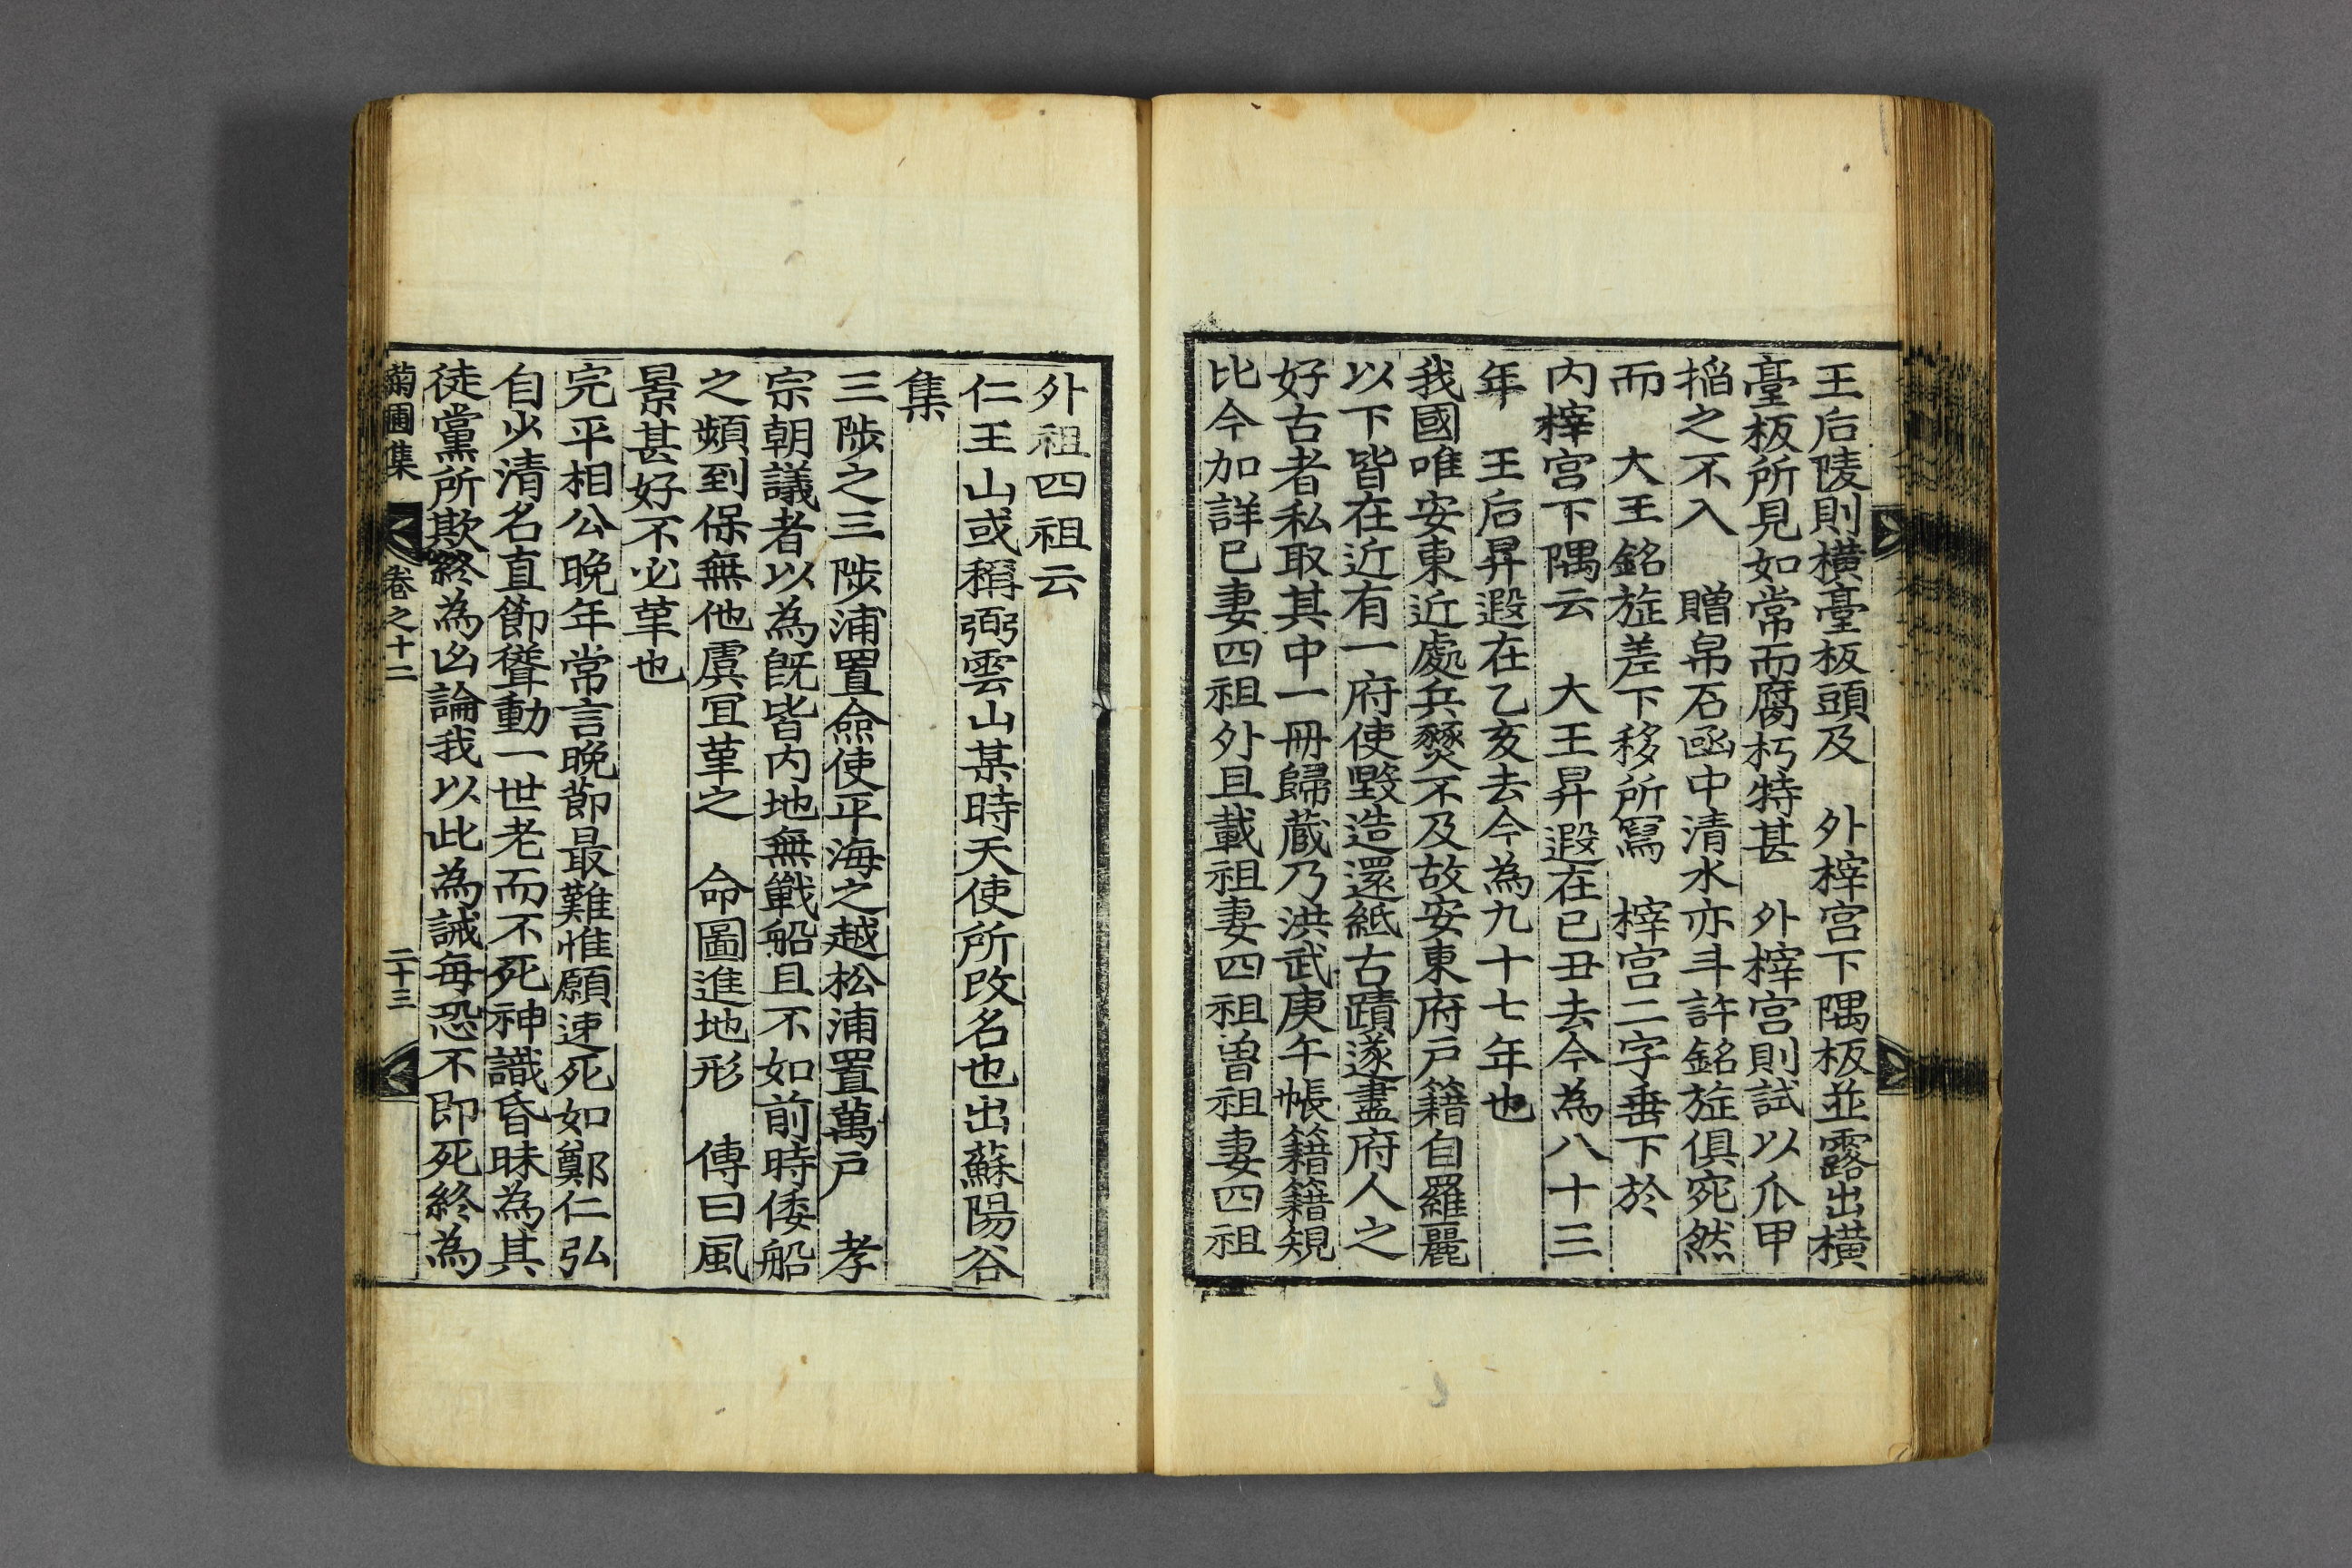 王后陵則橫臺板頭及　外梓宮下隅板並露出橫
臺板所見如常而腐朽特甚　外梓宮則試以爪甲
搯之不入　贈帛石凾中清水亦斗許銘旌俱宛然
而　大王銘旌差下移所寫　梓宮二字垂下於
內梓宮下隅云　大王昇遐在己丑去今為八十三
年　王后昇遐在乙亥去今為九十七年也
我國唯安東近處兵燹不及故安東府戶籍自羅麗
以下皆在近有一府使毀造還紙古蹟遂盡府人之
好古者私取其中一冊歸藏乃洪武庚午帳籍籍規
比今加詳已妻四祖外且載祖妻四祖曾祖妻四祖
外祖四祖云
仁王山或稱弼雲山某時天使所改名也出蘇陽谷
集
三陟之三陟浦置僉使平海之越松浦置萬戶　孝
宗朝議者以為既皆內地無戰船且不如前時倭船
之頻到保無他虞宜革之　命圖進地形　傳曰風
景甚好不必革也
完平相公晚年常言晚節最難惟願速死如鄭仁弘
自少清名直節聳動一世老而不死神識昏昧為其
徒黨所欺終為凶論我以此為誡每恐不即死終為
菊圃集　卷之十二　二十三